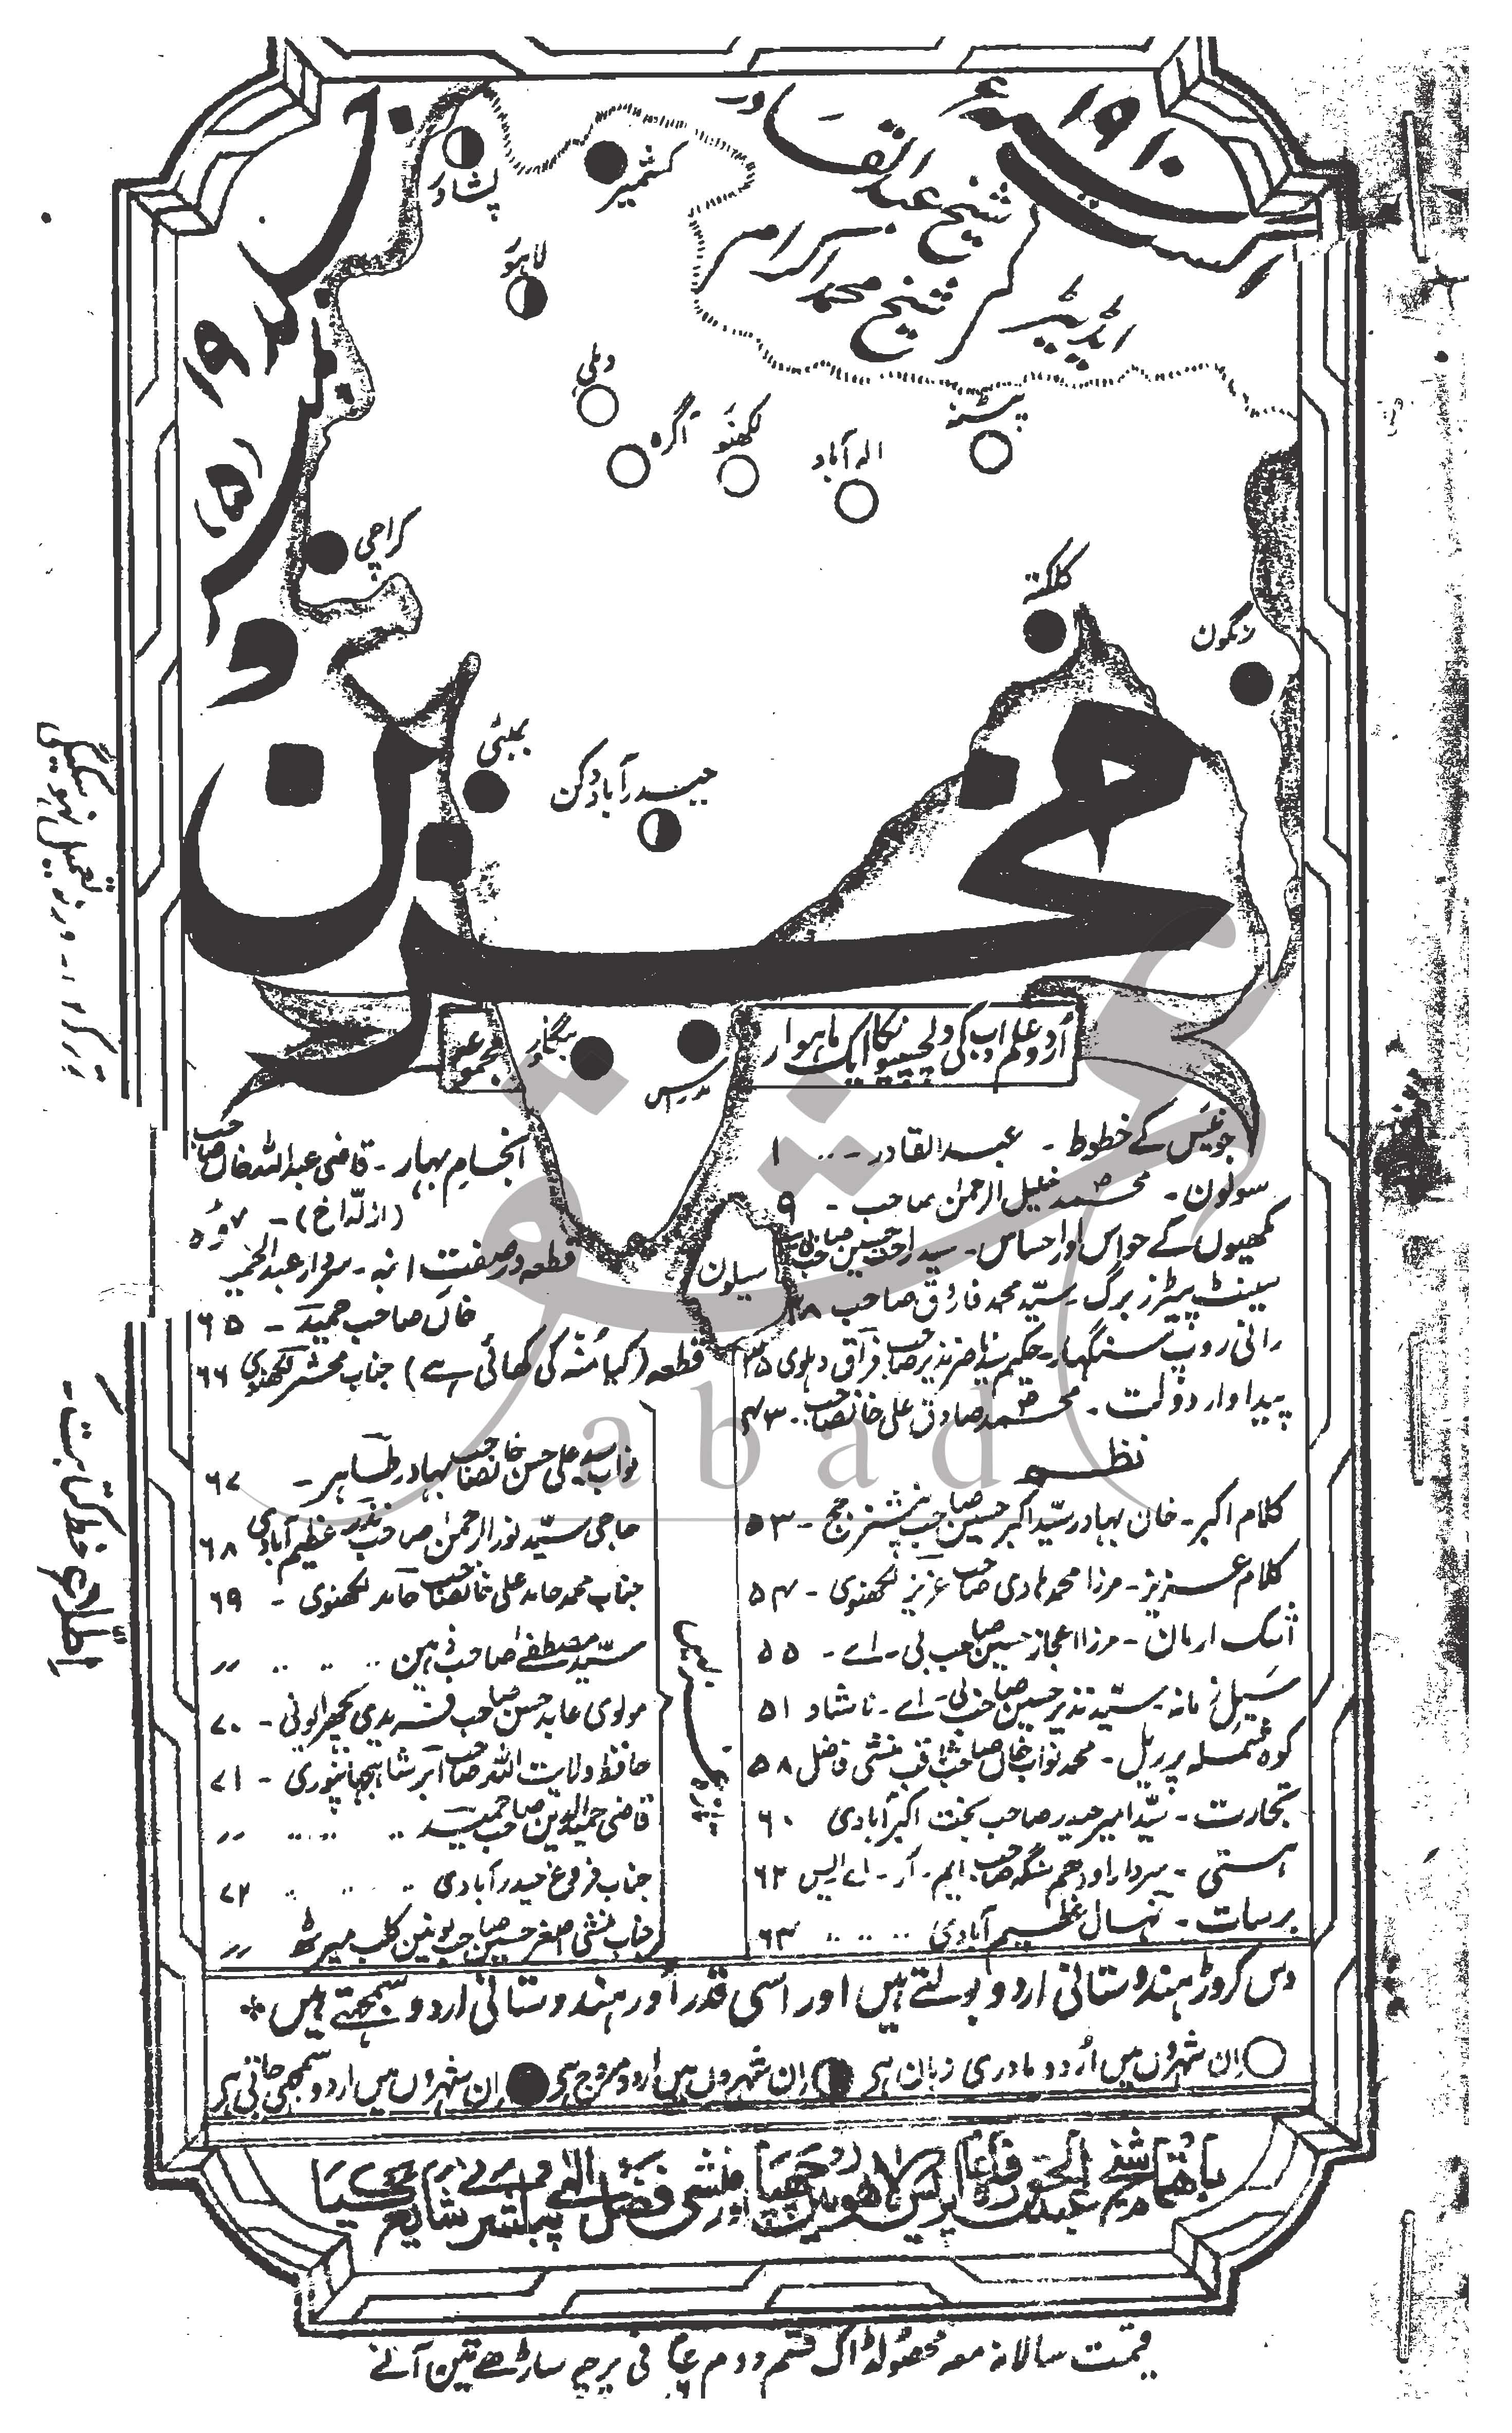 اگست ۱۹۱۰ء
شیخ عبدالقادر
ایڈیٹر
شیخ محمد اکرام
جلد ۱۹
نمبر (۵)
پشاور
کشمیر
لاہور
دہلی
آگرہ
لکھنؤ
الہ آباد
پٹنہ
کراچی
کلکتہ
رنگون
بمبئی
حیدرآباد دکن
مخزن
اُردو علم ادب کی دلچسپیوں کا ایک ماہوار مجموعہ
بنگلور
مدراس
سیلون
جوئیس کے خطوط - عبدالقادر - ۱
سولون - محمد خلیل الرحمٰن صاحب - ۹
مکھیوں کے حواس اور احساس - سید راحت حسین صاحب
سینٹ پیٹرز برگ - سیّد محمد فاروق صاحب ۲۸
رانی روپ سنگہار - حکیم سید ناصر نذیر صاحب فراق دہلوی ۳۵
پیداوار دولت - محمد صادق علی خانصاحب - ۴۳
نظم
کلام اکبر - خان بہادر سیّد اکبر حسین صاحب پنشنر جج - ۵۳
کلام عزیز - مرزا محمد ہادی صاحب عزیز لکھنوی - ۵۴
اشک ارمان - مرزا اعجاز حسین صاحب بی - اے - ۵۵
سَیلِ زمانہ - سیّد نذیر حسین صاحب بی اے - ناشاد ۵۱
کوہ شملہ پر ریل - محمد نواب خاں صاحب ثاقب منشی فاضل ۵۸
تجارت - سیّد امیر حیدر صاحب بخت اکبر آبادی ۶۰
ہستی - سردار اودھم سنگھ صاحب ایم - آر - اے ایس ۶۲
برسات - نہال عظیم آبادی ۶۳
انجام بہار - قاضی عبداللہ خاں صاحب
(از لدّاخ) -
قطعہ در صفت انبہ - سردار عبدالحمید
خاں صاحب حمید - ۶۵
قطعہ (کیا مُنہ کی کھائی ہے) جناب محشر لکھنوی ۶۶
تازہ غزلیں
نواب سید علی حسن خانصاحب بہادر طاہر - ۶۷
حاجی سیّد نور الرحمٰن صاحب نذر عظیم آبادی ۶۸
جناب محمد حامد علی خانصاحب حامد لکھنوی - ۶۹
سیّد مصطفےٰ صاحب ذہین ״
مولوی عابد حسن صاحب فریدی بچھرایونی - ۷۰
حافظ ولایت اللہ صاحب ابر شاہجہانپوری - ۷۱
قاضی حمید الدین صاحب حمید ״
جناب فروغ حیدر آبادی ۷۲
جناب منشی اصغر حسین صاحب یونین کلب میرٹھ ״
دس کروڑ ہندوستانی اردو بولتے ہیں اور اسی قدر اور ہندوستانی اردو سمجھتے ہیں *
اِن شہروں میں اُردو مادری زبان ہی اِن شہروں میں اُردو مروج ہی اِن شہروں میں اردو سمجھی جاتی ہی
قیمت سالانہ معہ محصول ڈاک قسم دوم فی پرچہ ساڑھے تین آنے
abad